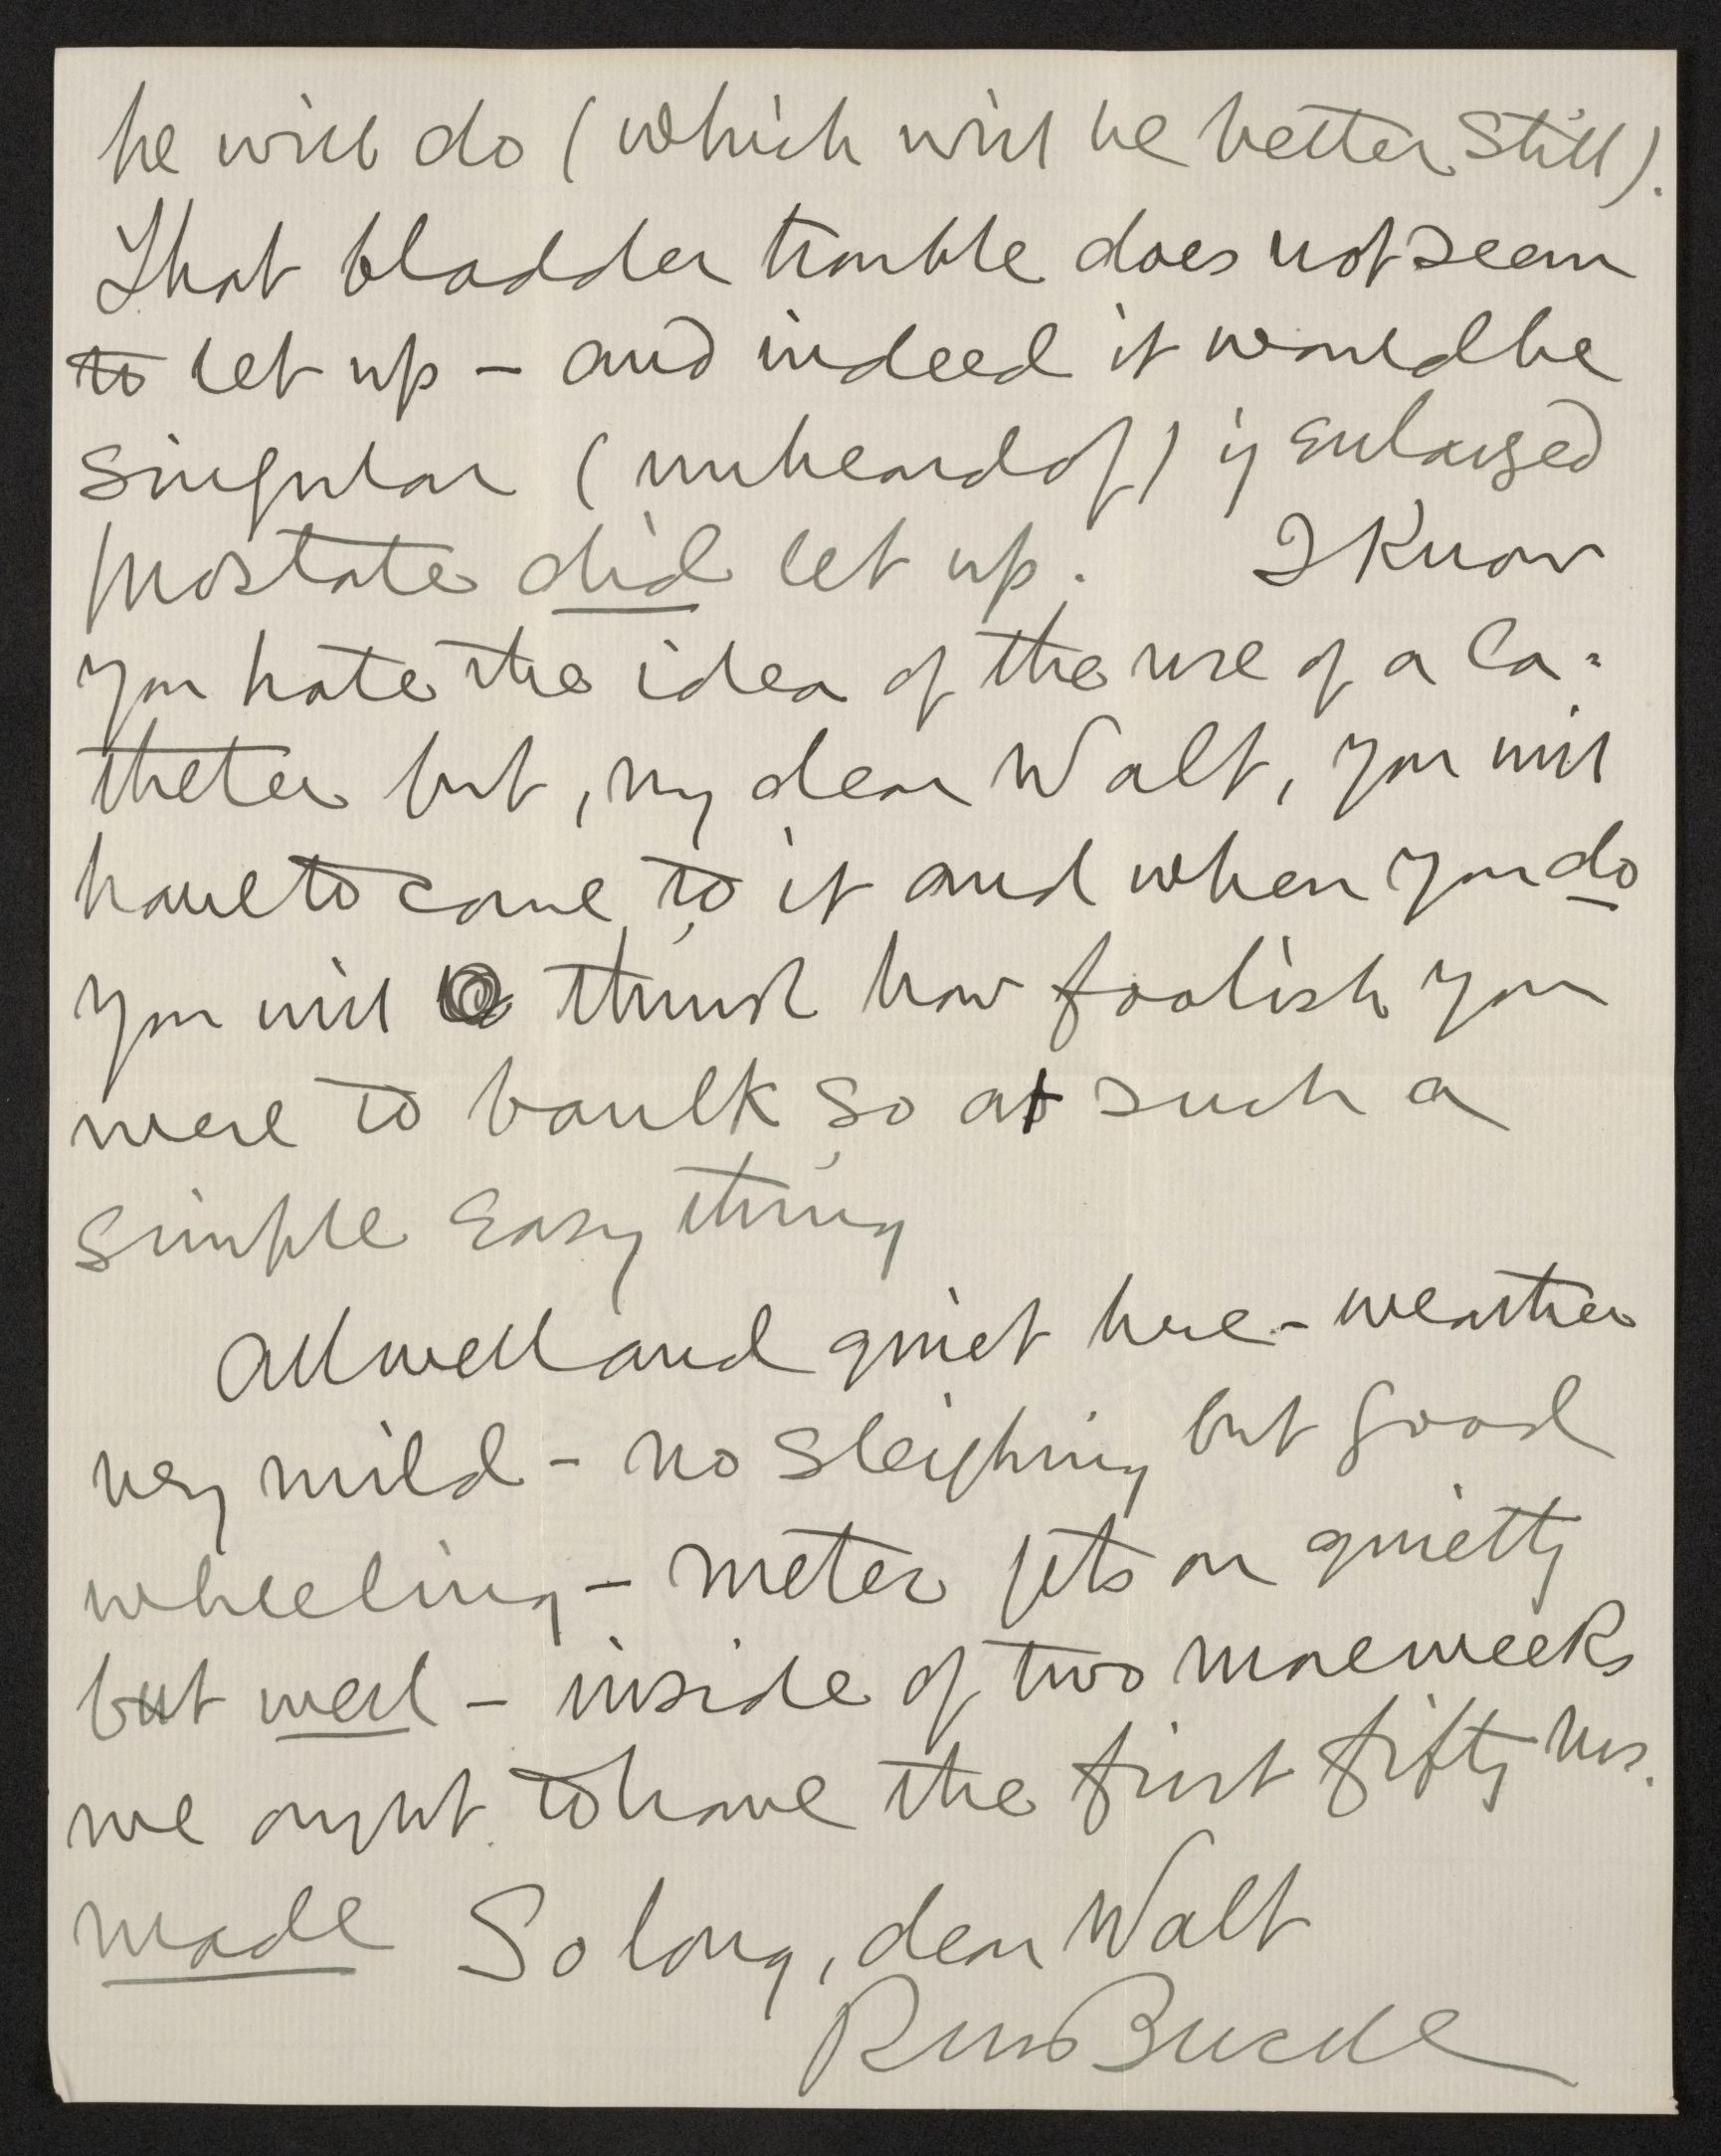 he will do (which will be better still).
That bladder trouble does not seem
to let up – and indeed it would be
singular (unheard of) if enlarged
prostate did let up. I Know
you hate the idea of the use of a ca=
theter but, my dear Walt, you will
have to come to it and when you do
you will think how foolish you
were to baulk so at such a
simple, easy thing
All well and quiet here – weather
very mild – no sleighing but good
wheeling – meter gets on quietly
but well – inside of two more weeks
we ought to have the first fifty ms.
made So long, dear Walt
RM Bucke